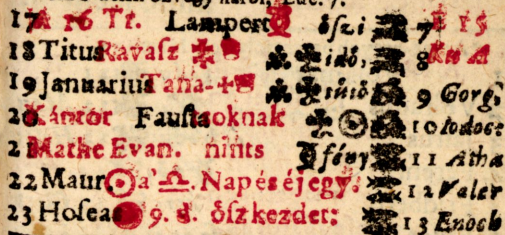 17 A 16 Tr. Lampert őszi 7 E 15
18 Titus Ravasz idő, 8 Ku A
19 Januarius Tana- tűtő 9 Gorg.
20 Kántor Fausta soknak 10 Iodoc:
21 Mathe Evan. nints fény 11 Atha
22 Maur a' ♎. Nap és éj egy. 12 Valer
23 Hoseas 9. d. ősz kezdet: 13 Enoch